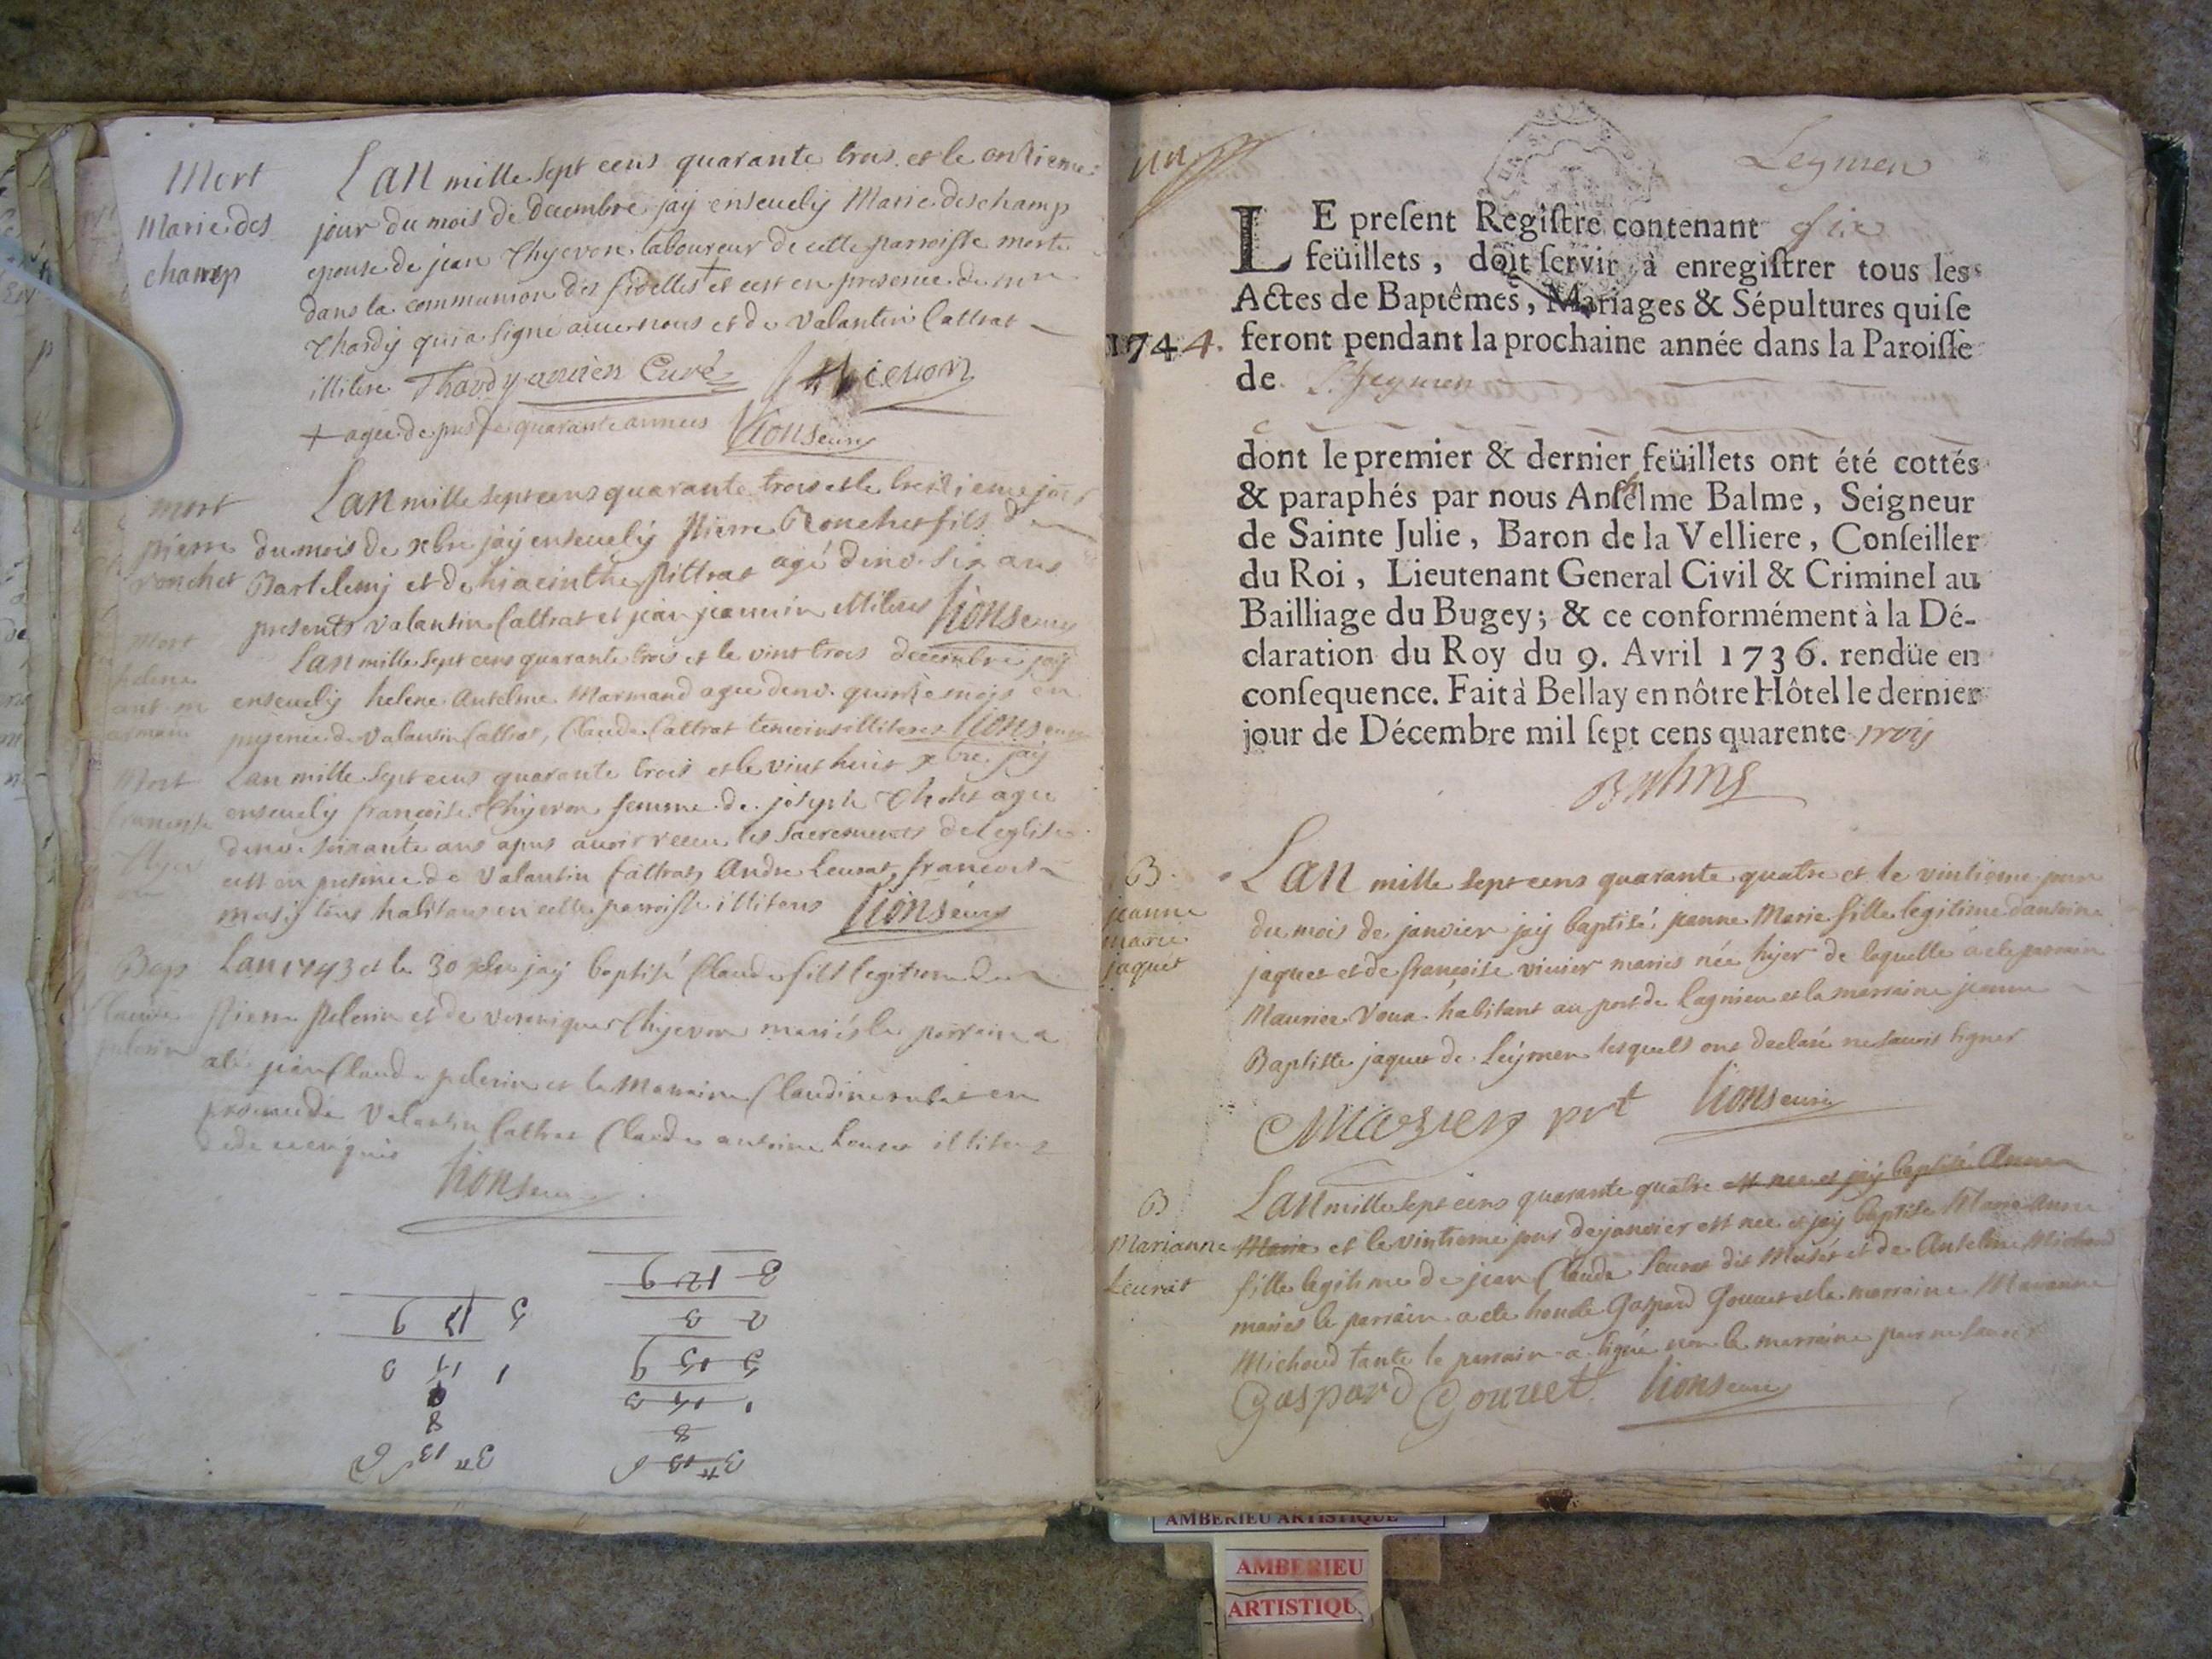 Mort
Marie des
champ
Lan mille sept cens quarante trois et le onzieme
jour du mois de decembre jay ensevely Marie deschamp
epouse de jean Thyevon laboureur de cette parroisse morte
dans la communion des fidelles + et cest en presence de
Thardy qui a signé avec nous et de Valantin Cattrat
illitere Thardy ancien Curé Thievon
+ agée de pres de quarante années Lionseurs
mort
pierre
ronchet
Lan mille sept cens quarante trois et le treizieme jour
du mois de xbre jay ensevely pierre Ronchet fils de
Bartelemy et de hiacinthe pittrat agé denv. six ans
presents Valantin Cattrat et jean jeannin illiteres Lionseurs
Mort
helene
Lan mille sept cens quarante trois et le vint trois decembre jay
ensevely helene Anselme Marmand agee denv. quinze mois en
presence de Valantin Cattrat, Claude Cattrat temoins illiteres Lionseurs
Mort
francoise
Thyevon
Lan mille sept cens quarante trois et le vint huit xbre jay
ensevely françoise Thyevon femme de joseph agee
denv. soixante ans apres avoir receu les sacrements de leglise
cest en presence de Valantin Cattrat, Andre Leurat, francois
tous habitans en cette parroisse illiteres Lionseurs
Bap
Claude
pelerin
Lan 1743 et le 30 xbre jay baptisé Claude fils legitime de
pierre pelerin et de veronique Thyevon mariés le parrain a
été jean Claude pelerin et la Marraine Claudine en
presence de Valantin Cattrat Claude antoine Leurat illiteres
de ce enquis
Lionseurs
3 12 9
2 3
5 15 9
1 14 3
8
3 13 6
5 17 9
1 11 3
8
3 13 6
Leymen
LE present Registre contenant six
feüillets, doit servir à enregistrer tous les
Actes de Baptêmes, Mariages & Sépultures qui se
1744. feront pendant la prochaine année dans la Paroisse
de Leymen
dont le premier & dernier feüillets ont été cottés
& paraphés par nous Anthelme Balme, Seigneur
de Sainte Julie, Baron de la Velliere, Conseiller
du Roi, Lieutenant General Civil & Criminel au
Bailliage du Bugey; & ce conformément à la Dé-
claration du Roy du 9. Avril 1736. rendüe en
consequence. Fait à Bellay en nôtre Hôtel le dernier
jour de Décembre mil sept cens quarente trois
Balme
B
jeanne
marie
jaquet
Lan mille sept cens quarante quatre et le vintieme jour
du mois de janvier jay baptisé jeanne Marie fille legitime dantoine
jaquet et de françoise vivier mariés née hyer de laquelle a ete parrain
Maurice Voua habitant au port de Lagnieu et la marraine jeanne
Baptiste jaquet de Leymen lesquels ont declaré ne savoir signer
Mazuer prt Lionseurs
B
Marianne
Leurat
Lan mille sept cens quarante quatre est nee et jay baptisé Anne
Marie et le vintieme jour de janvier est nee et jay baptisé Marie Anne
fille legitime de jean Claude Leurat dit Muset et de Anselme Michoud
mariés le parrain a ete honete Gaspard Gouvet et la marraine Marianne
Michoud tante le parrain a signé non la marraine pour ne savoir
Gaspard Gouvet Lionseurs
AMBERIEU ARTISTIQUE
AMBERIEU
ARTISTIQU